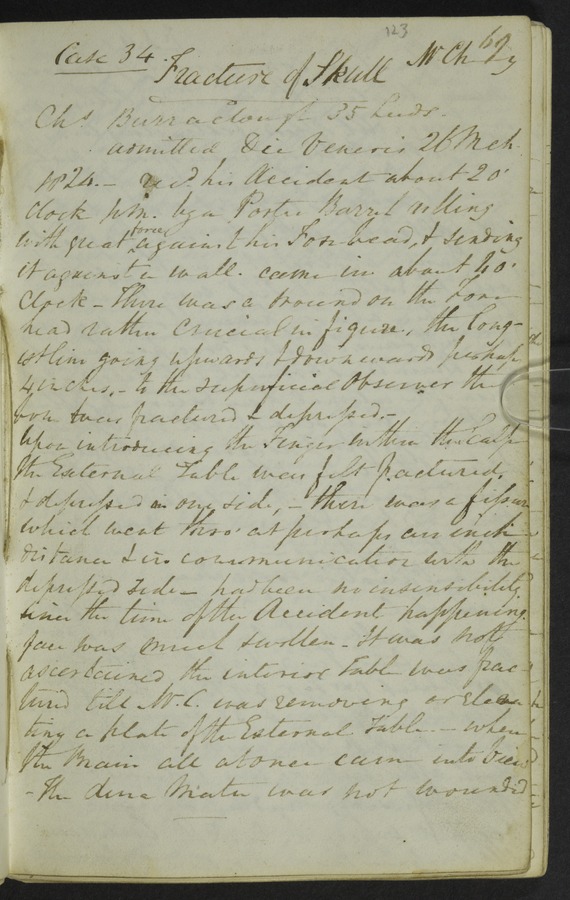 123
Case 34. Fracture of Skull Mr Ch
Chs Barraclough 35 Leeds.
admitted Die Veneris 26 Mch
1824. – recd. his Accident about 20'
Clock p.m. by a Porter Barrel rolling
with great force against his Forehead, & sending
it against a wall. came in about 40'
Clock – There was a wound on the Fore
head rather Crucial in figure, the long-
est line going upwards & downwards perhaps
4 inches, – to the superficial Observer the
bone was fractured & depressed. –
Upon introducing the Finger within the Scalp
the External Table was felt fractured,
& depressed on one side, – there was a fissure
which went thro' at perhaps an inch
distance & in communication with the
depressed side – had been no insensibility
since the time of the Accident happening.
face was much swollen – It was not
ascertained the interior Table was frac
tured till Mr. C. was removing or eleva
ting a plate of the External Table. – when
the Brain all at once came into View
– The dura Mater was not wounded